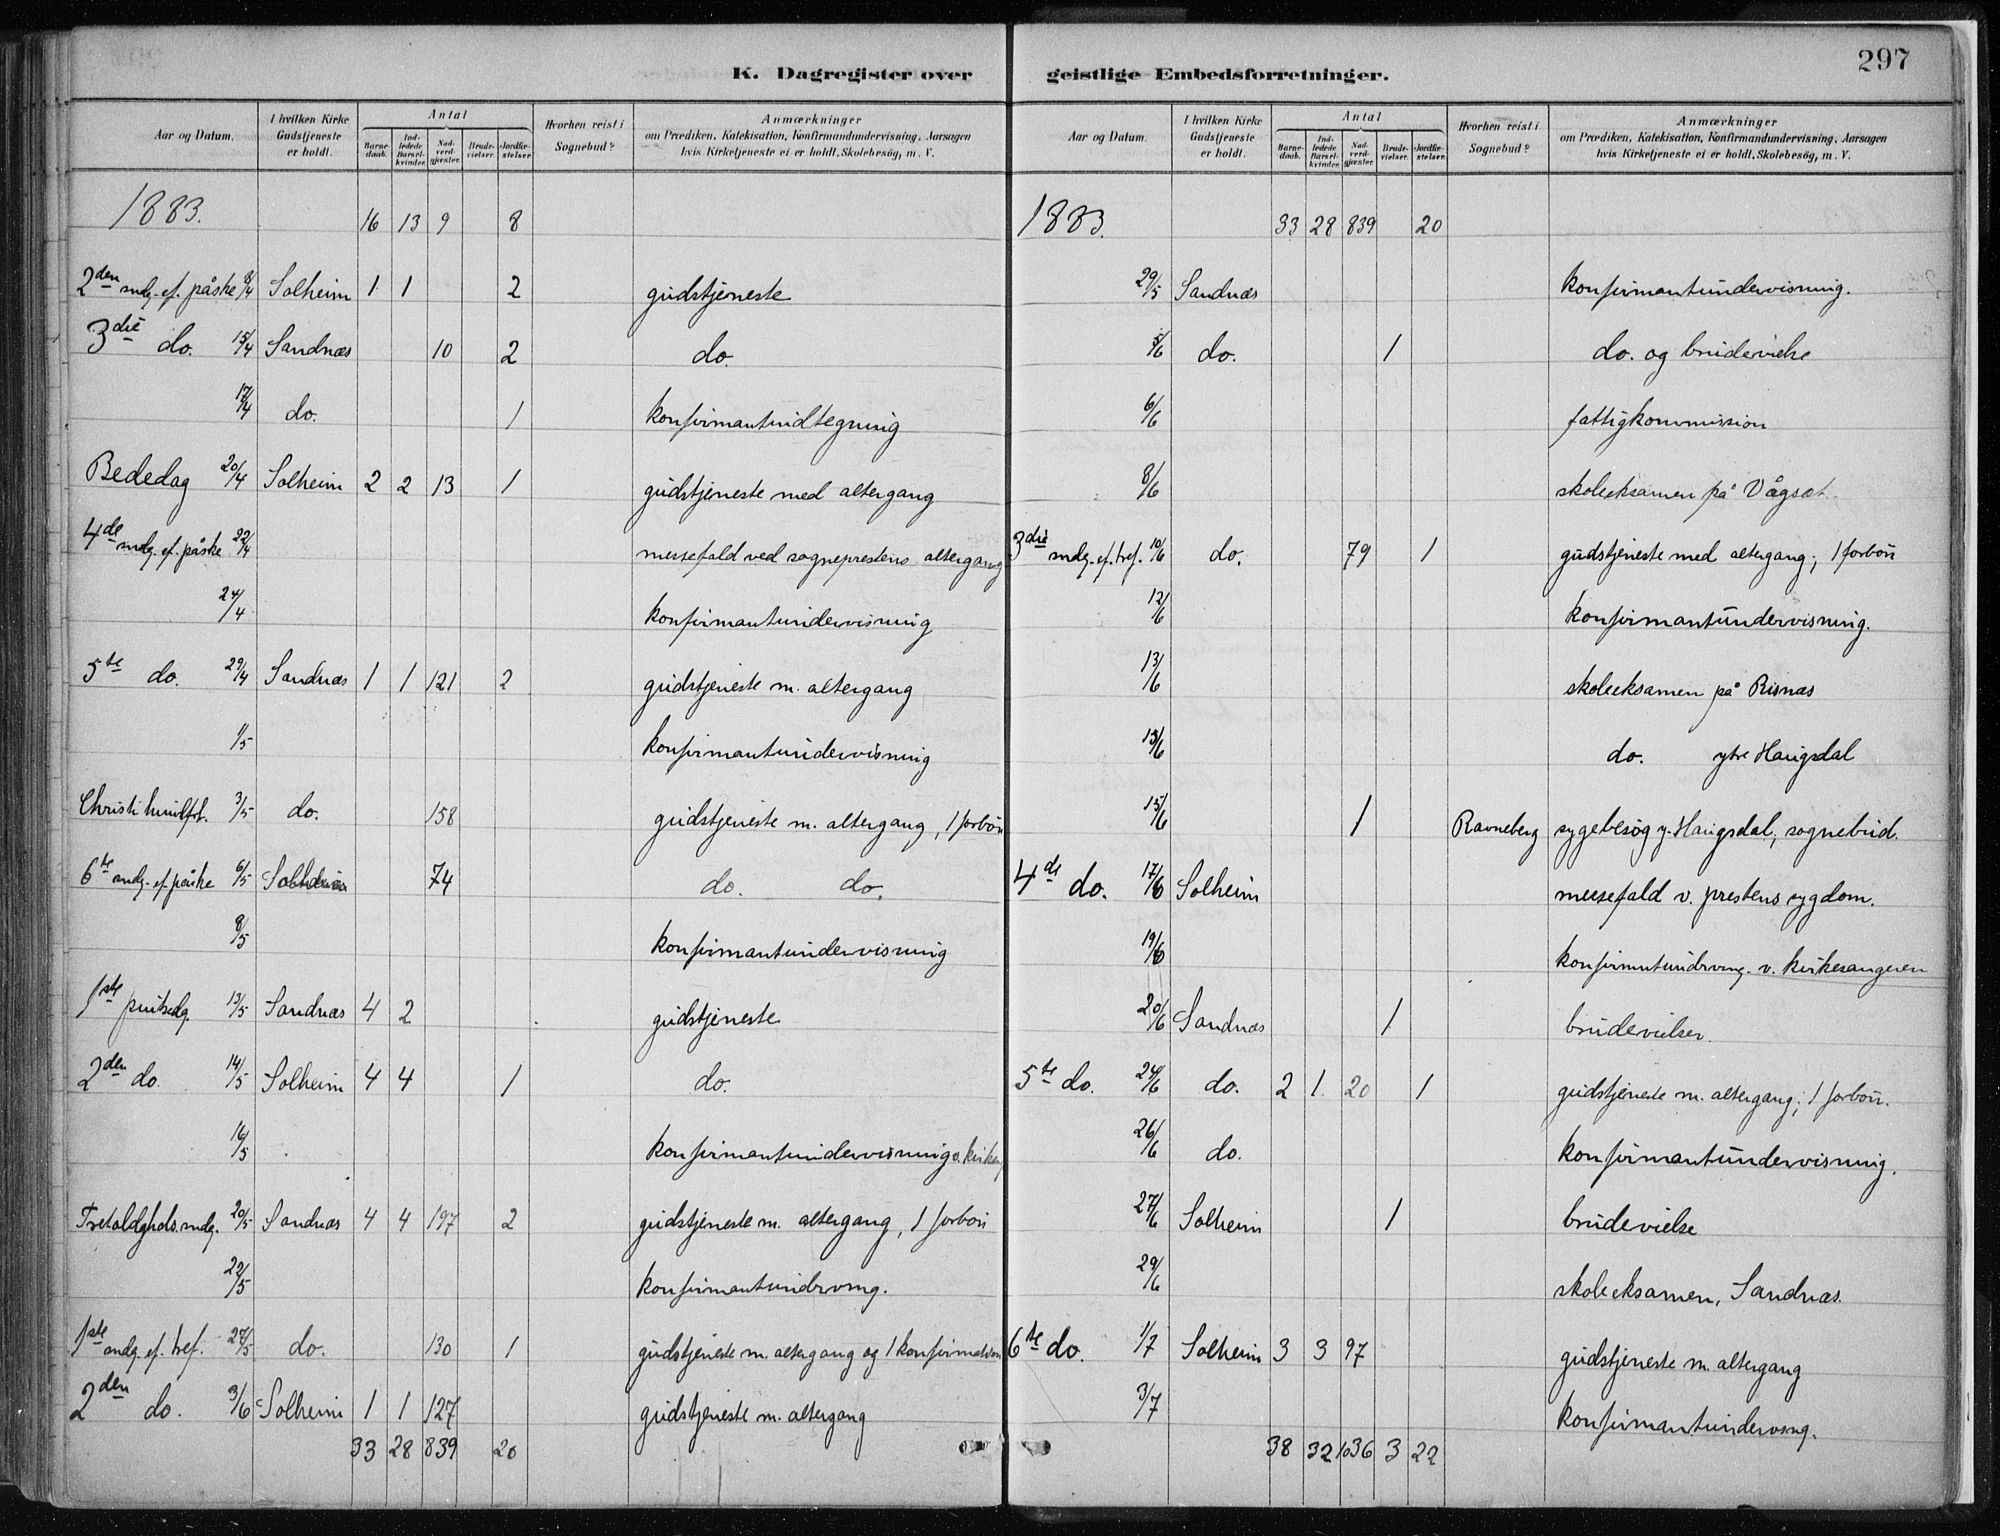 297
K. Dagregister over geistlige Embedsforretninger.
Aar og Datum. I hvilken Kirke Gudstjeneste er holdt. Antal Barnedaab. Indledede Barselkvinder. Nadverdgjester. Brudevielser. Jordfæstelser. Hvorhen reist i Sognebud? Anmærkninger om Prædiken, Katekisation, Konfirmandundervisning, Aarsagen hvis Kirketjeneste ei er holdt, Skolebesög, m. V.
1883. 16 13 9 8
2den sndg. ef. påske 8/4 Solheim 1 1 2 gudstjeneste
3die do. 15/4 Sandnæs 10 2 do.
17/4 do. 1 konfirmantindtegning
Bededag 20/4 Solheim 2 2 13 1 gudstjeneste med altergang
4de sndg. ef. påske 22/4 messefald ved sogneprestens altergang
24/4 konfirmantundervisning
5te do. 29/4 Sandnæs 1 1 121 2 gudstjeneste m. altergang
1/5 konfirmantundervisning
Christi himlfrt. 3/5 do. 158 gudstjeneste m. altergang, 1 forbön
6te sndg. ef. påske 6/5 74 do. do.
8/5 konfirmantundervisning
1ste pintsedg. 13/5 Sandnæs 4 2 gudstjeneste
2den do. 14/5 Solheim 4 4 1 do.
16/5 konfirmantundervisning
Trefoldghds.sndg. 20/5 Sandnæs 4 4 197 2 gudstjeneste m. altergang, 1 forbön
22/5 konfirmantundrvsng.
1ste sndg. ef. tref. 27/5 do. 130 1 gudstjeneste m. altergang og 1 konfirmation
2den do. 3/6 Solheim 1 1 127 gudstjeneste m. altergang
33 28 839 20
Aar og Datum. I hvilken Kirke Gudstjeneste er holdt. Antal Barnedaab. Indledede Barselkvinder. Nadverdgjester. Brudevielser. Jordfæstelser. Hvorhen reist i Sognebud? Anmærkninger om Prædiken, Katekisation, Konfirmandundervisning, Aarsagen hvis Kirketjeneste ei er holdt, Skolebesög, m. V.
1883. 33 28 839 20
29/5 Sandnæs konfirmantundervisning.
5/6 do. 1 do. og brudevielse
6/6 fattigkommission
8/6 skoleeksamen på Vågsæt
3die sndg. ef. tref. 10/6 do. 79 1 gudstjeneste med altergang; 1 forbön
12/6 konfirmantundervisning.
13/6 skoleeksamen på Risnæs
do. ytre Haugsdal
15/6 1 Ravneberg sygebesög y. Haugsdal; sognebud.
4de do. 17/6 Solheim messefald v. prestens sygdom.
19/6 konfirmantundrvng. v. kirkesangeren
20/6 Sandnæs 1 brudevielser.
5te do. 24/6 do. 2 1 20 1 gudstjeneste m. altergang; 1 forbön.
26/6 do. konfirmantundervisning.
27/6 Solheim 1 brudevielse
29/6 skoleeksamen, Sandnæs.
6te do. 1/7 Solheim 3 3 97 gudstjeneste m. altergang
3/7 konfirmantundervsng.
38 32 1036 3 22